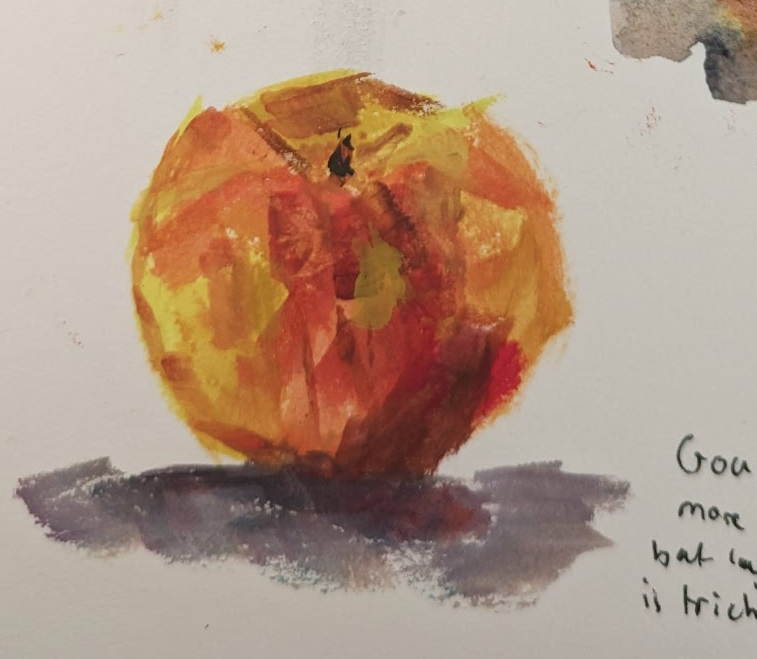 Gou
more
but la
is trick